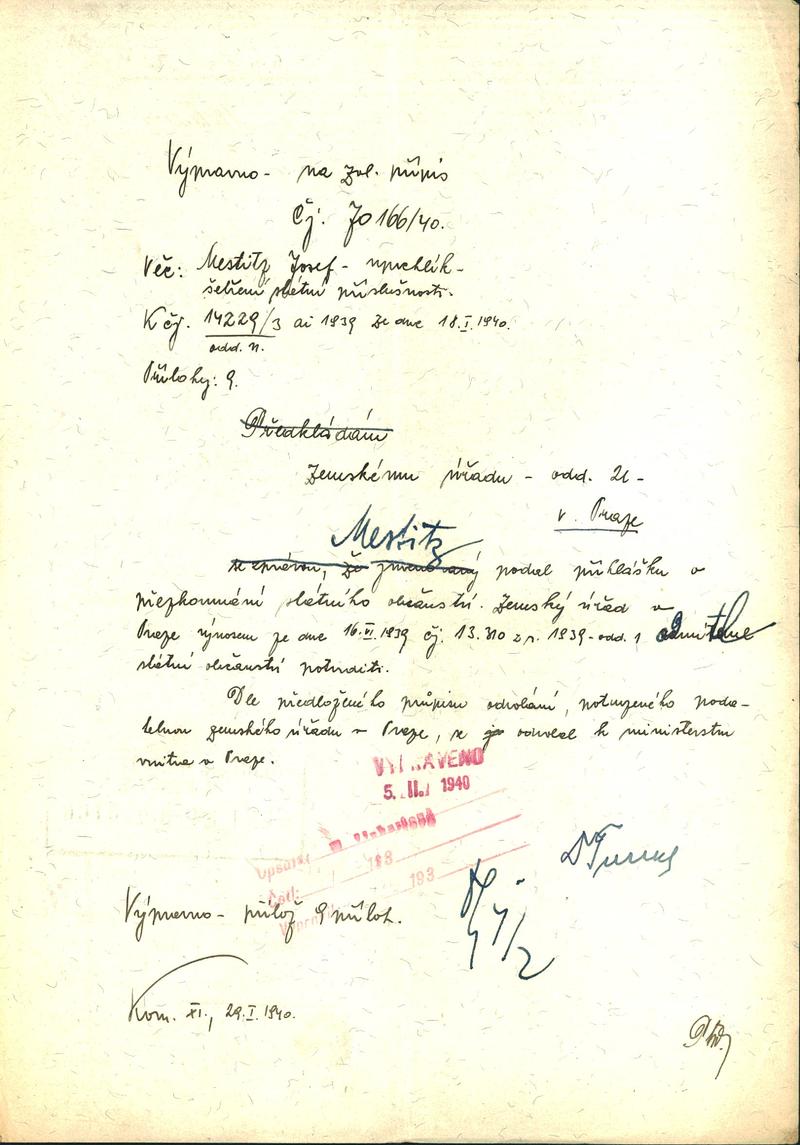 Výpravno - na zvl. přípis
Čj. Jo 166/40.
Věc: Mestitz Josef - uprchlík -
šetření státní příslušnosti.
K čj. 14229/3 ai 1939 ze dne 18.I.1940.
odd. 21.
Přílohy: 9.
Předkládám
Zemskému úřadu - odd. 21 -
v Praze
Mestitz
se zprávou, že jmenovaný podal přihlášku o
přezkoumání státního občanství. Zemský úřad v
Praze výnosem ze dne 16.VI.1939 čj. 13.310 z r. 1939 - odd. 1 odmítl
státní občanství potvrditi.
Dle předloženého průpisu odvolání, potvrzeného poda-
telnou zemského úřadu v Praze, se odvolal k ministerstvu
vnitra v Praze.
VYPRAVENO
5. II. 1940
193
Výpravno - přilož 9 příloh.
Kom. XI., 29.I.1940.